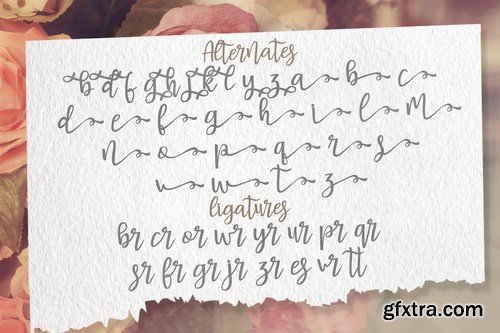 Alternates
b d f g h j k l y z a b c
d e f g h i l m
n o o p q r s
v w t z
ligatures
br cr or wr yr ur pr qr
sr fr gr jr zr es vr tt
gfxtra.com